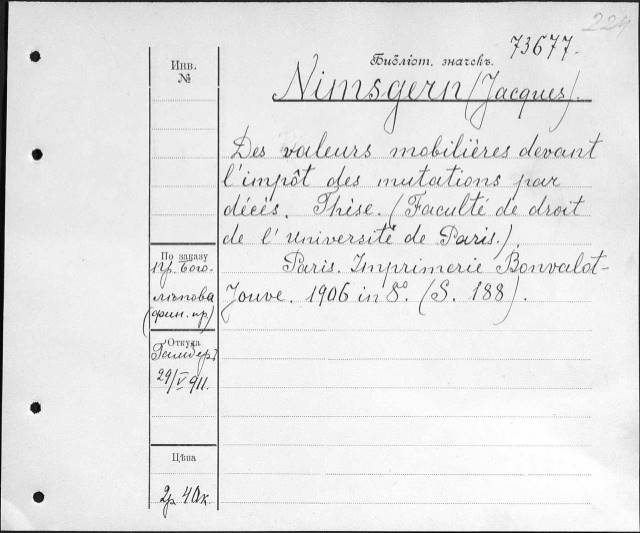 224
73677.
Библіот. значекъ.
Инв.
№
Nimsgern (Jacques).
Des valeurs mobilières devant
l'impôt des mutations par
décès. Thèse. (Faculté de droit
de l'université de Paris.).
Paris. Imprimerie Bonvalot-
Jouve. 1906 in 8º. (S. 188).
По заказу
пр. Бого-
лѣпова
(фин. пр.)
Откуда
29/V 911.
Цѣна
2р 40к.